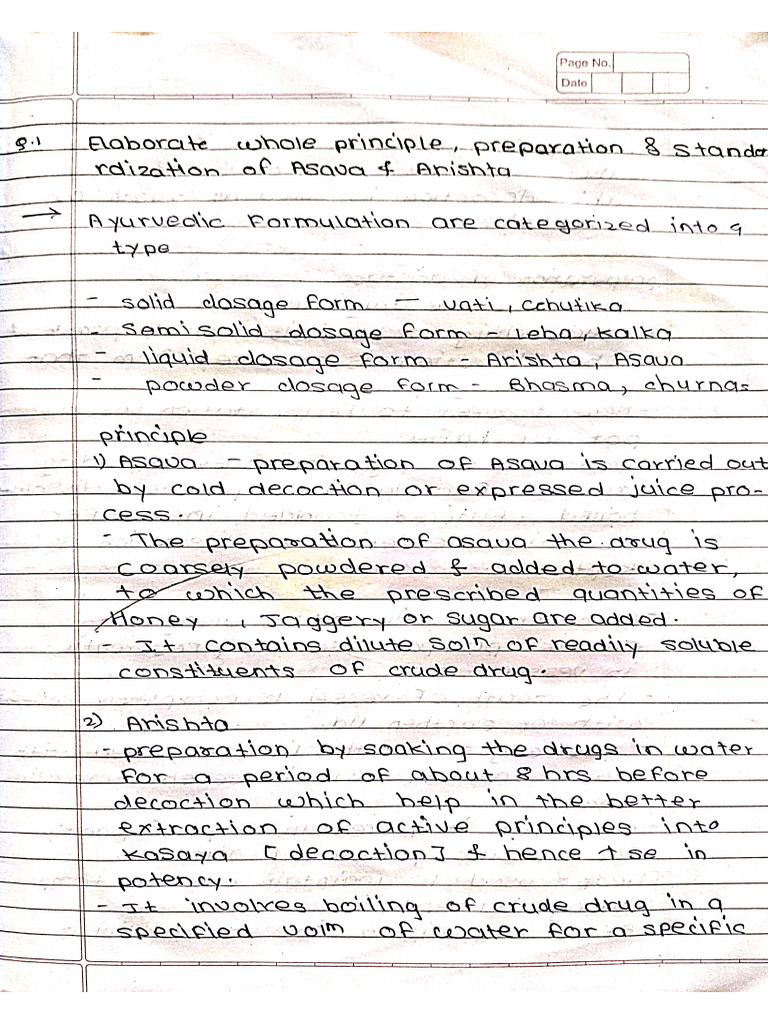 Page No.
Date
Q.1 Elaborate whole principle, preparation & standa
rdization of Asava & Arishta
→ Ayurvedic Formulation are categorized into 4
type
- solid dosage form - vati, Gchutika
- Semi solid dosage form - leha, kalka
- liquid dosage form - Arishta, Asava
- powder dosage form - Bhasma, churnas
principle
1) Asava - preparation of Asava is carried out
by cold decoction or expressed juice pro-
cess.
- The preparation of asava the drug is
coarsely powdered & added to water,
to which the prescribed quantities of
Honey, Jaggery or sugar are added.
- It contains dilute soln of readily soluble
constituents of crude drug.
2) Arishta
- preparation by soaking the drugs in water
for a period of about 8 hrs before
decoction which help in the better
extraction of active principles into
kasaya [decoction] & hence ↑se in
potency.
- It involves boiling of crude drug in a
specified volm of water for a specific